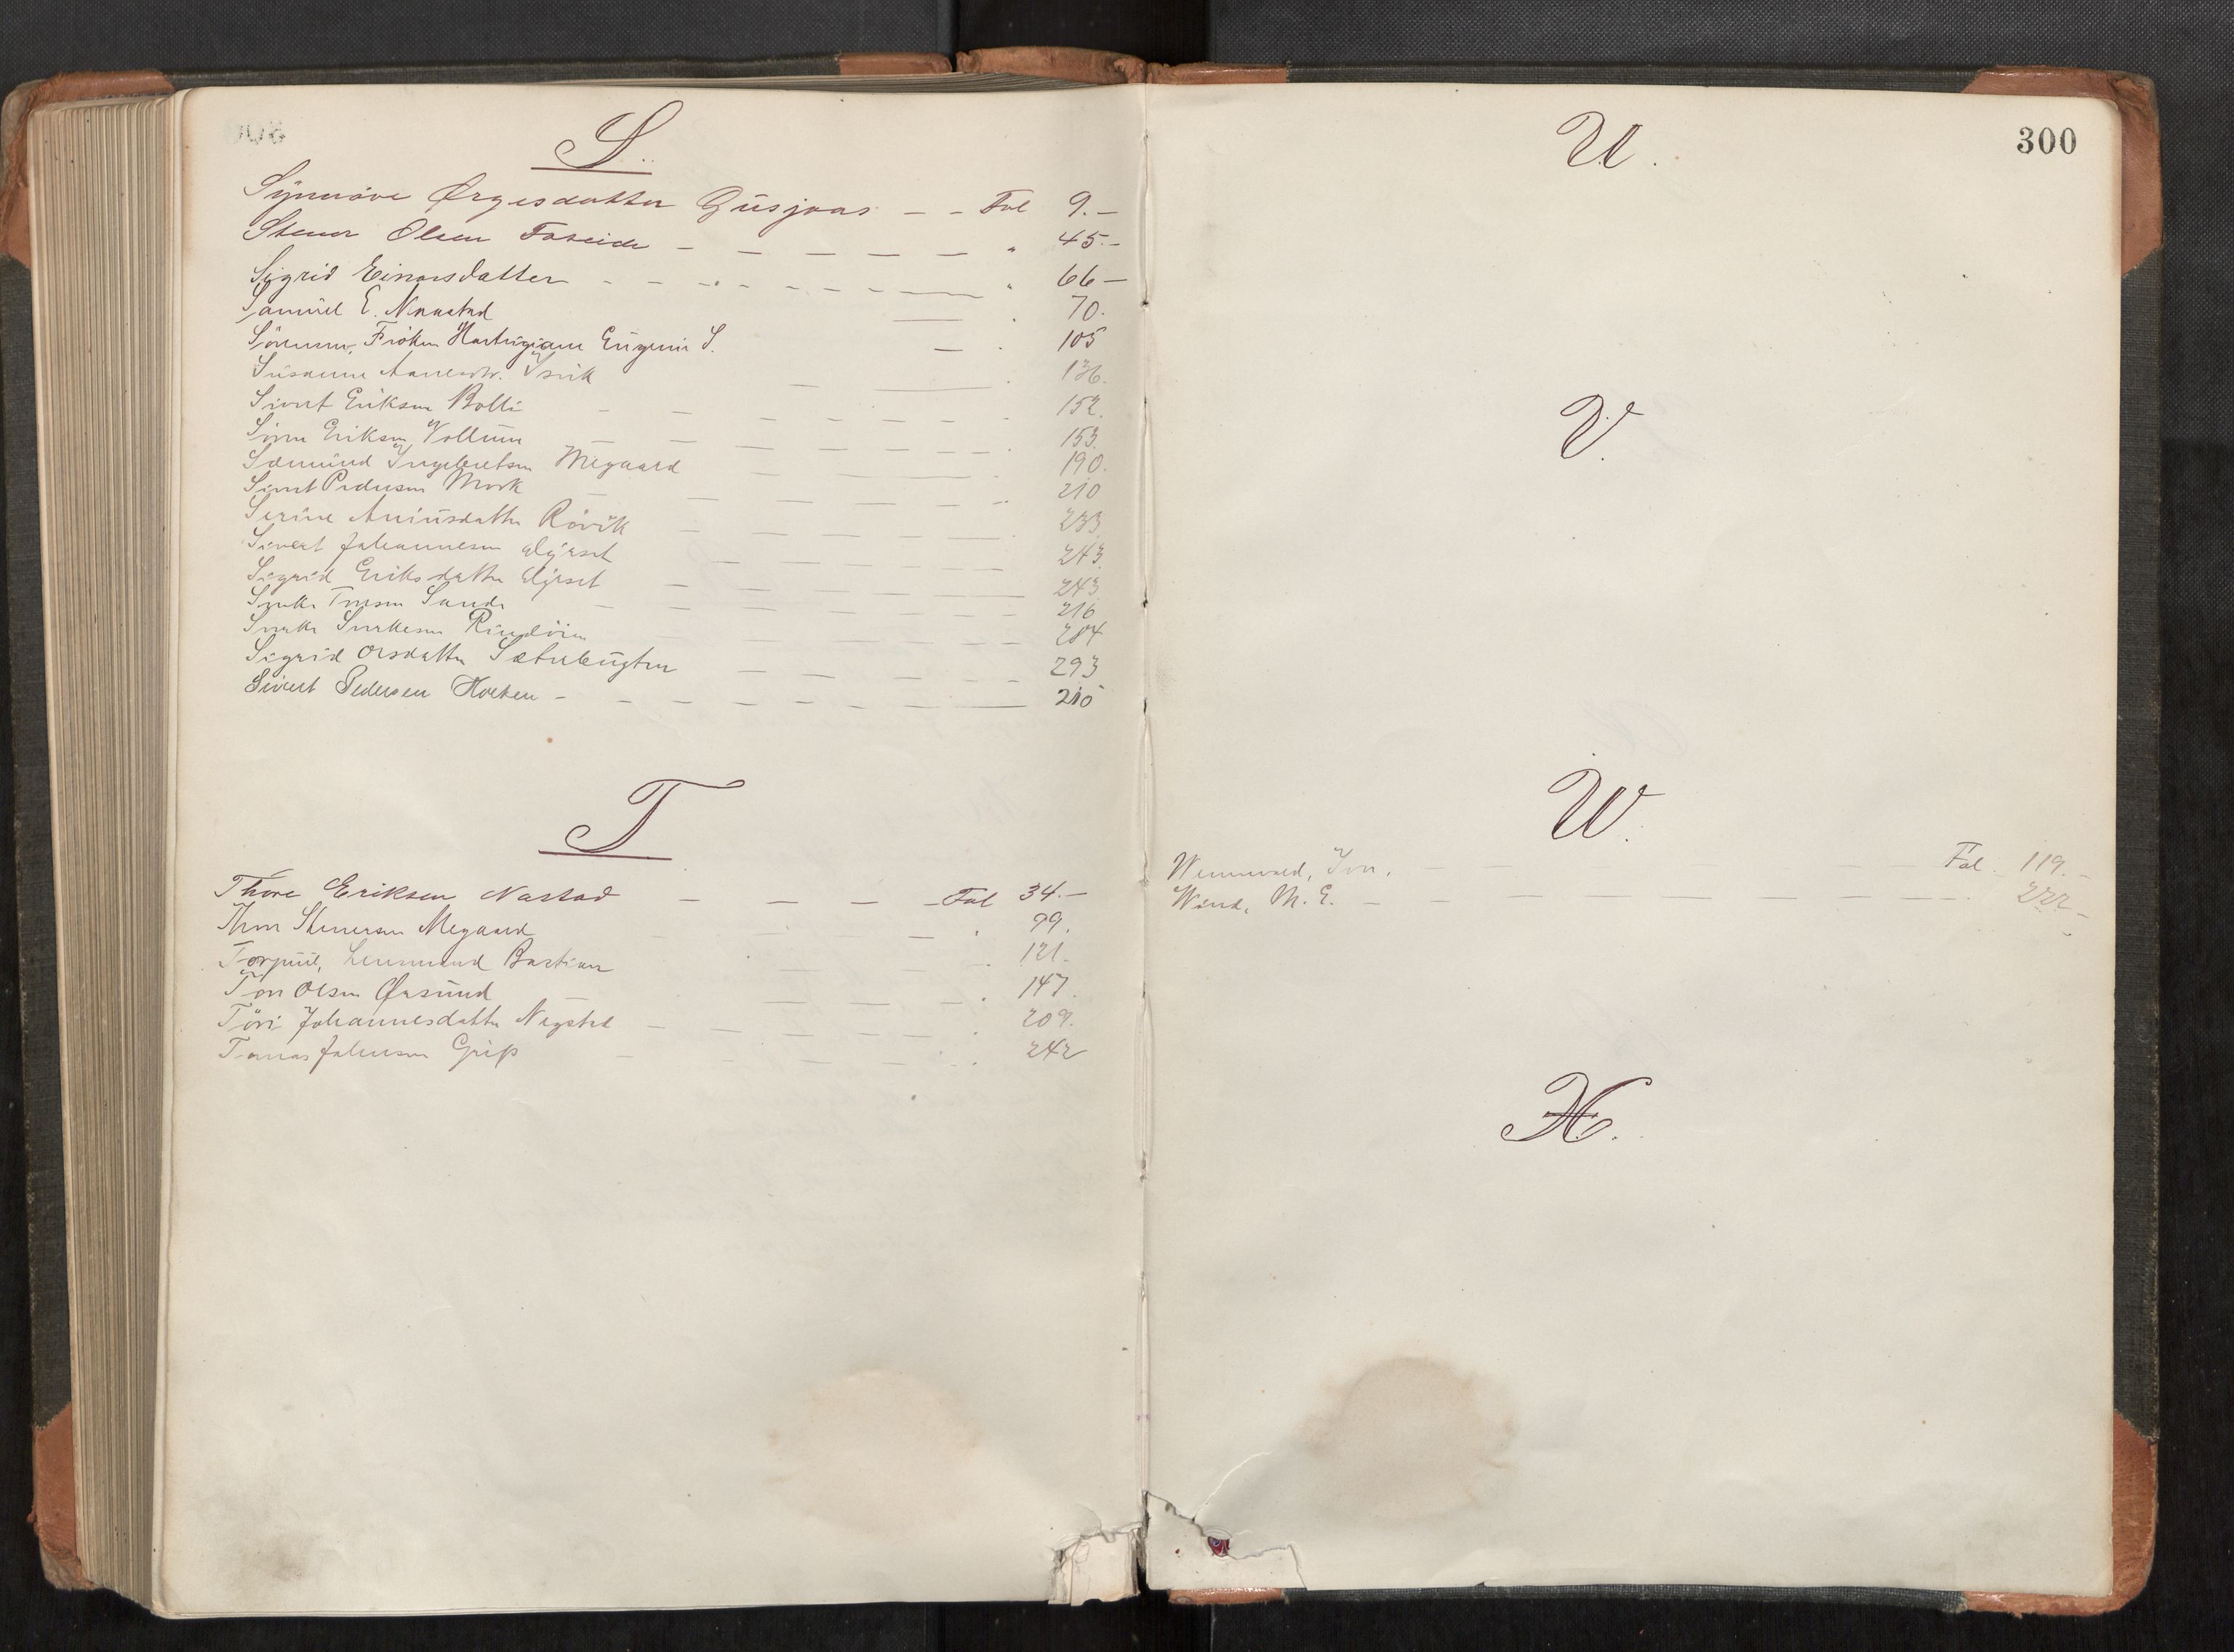 S.
Synnöve Ørgesdatter Gusjaas — - Fol 9.-
Stener Olsen Foseide - — — — — — " 45.-
Sigrid Einarsdatter - - - - - - - — " 66 —
Samuel E. Naastad — . 70.
Sörensen, Fröken Hartvigiane Eugenie S. — . 105
Susanne Aanensdtr. Isvik — — . 136.
Sivert Eriksen Bolli — — — — 152.
Sören Eriksen Vollum — — — — 153
Sæmund Ingebretsen Megaard — — — 190.
Sivert Pedersen Mork — — — — 210
Serine Aniusdatter Rövik — — — — 233.
Sivert Johannesen — — — — 243.
Sigrid Eriksdatter — — — — 243
Sande — — — — 216
Rindöien — — — — 284
Sigrid Olsdatter Sæterbugten — — — — 293
Sivert Pedersen - — — — — 210
T
Thore Eriksen Nastad — — — — Fol 34.-
Thore Stenersen Megaard — . 99.
Torjuul, Lensmand Bastian — . 121.
Tore Olsen Ørsund — — — . 147.
Töri Johannesdatter Nygstad — — — . 209.
Tomas Johnsen Grip — — . 242
300
U.
V.
W.
Wennevold, Iver. — — — Fol. 119. -
Wind, M. E. — — — — — — — . 222 -
X.